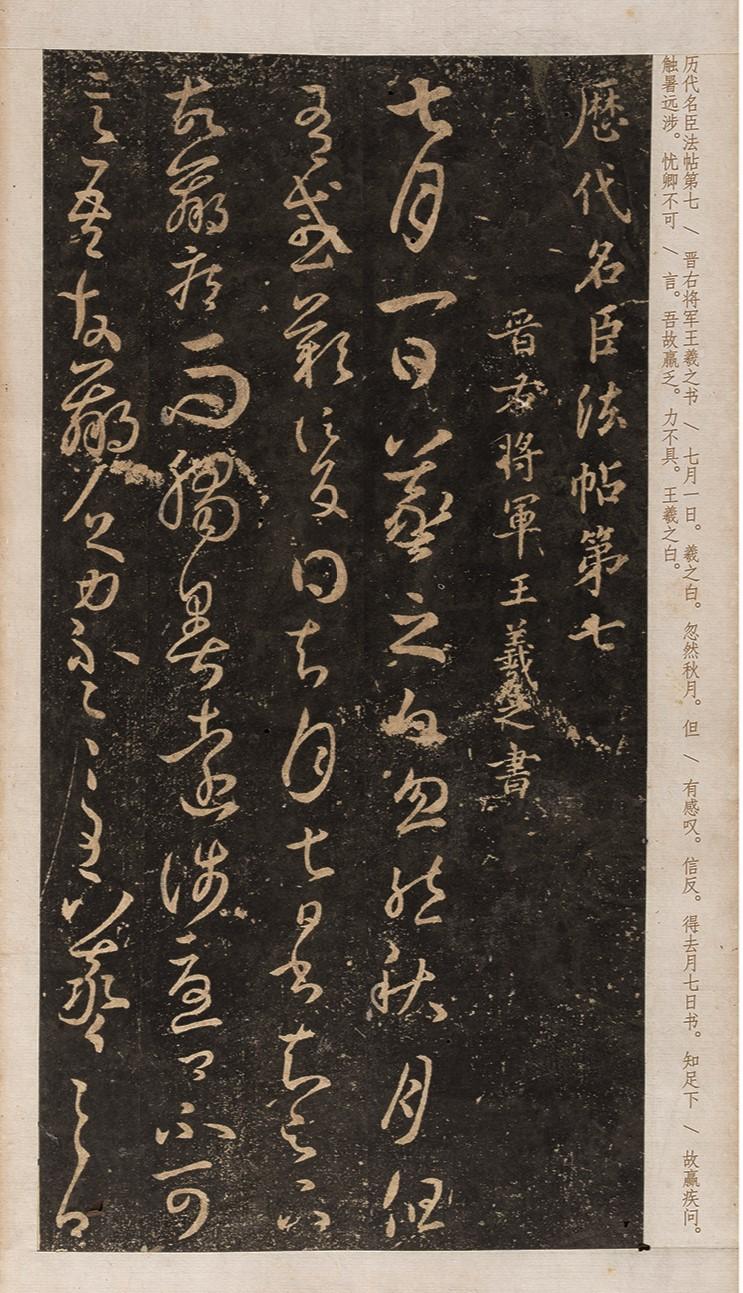 历代名臣法帖第七 \ 晋右将军王羲之书 \ 七月一日。羲之白。忽然秋月。但 \ 有感叹。信反。得去月七日书。知足下 \ 故羸疾问。
触暑远涉。忧卿不可 \ 言。吾故羸乏。力不具。王羲之白。
歷代名臣法帖第七
晋右將軍王羲之書
七月一日羲之白忽然秋月但
有感歎信反得去月七日書知足下
故羸疾問觸暑遠涉憂卿不可
言吾故羸乏力不具王羲之白